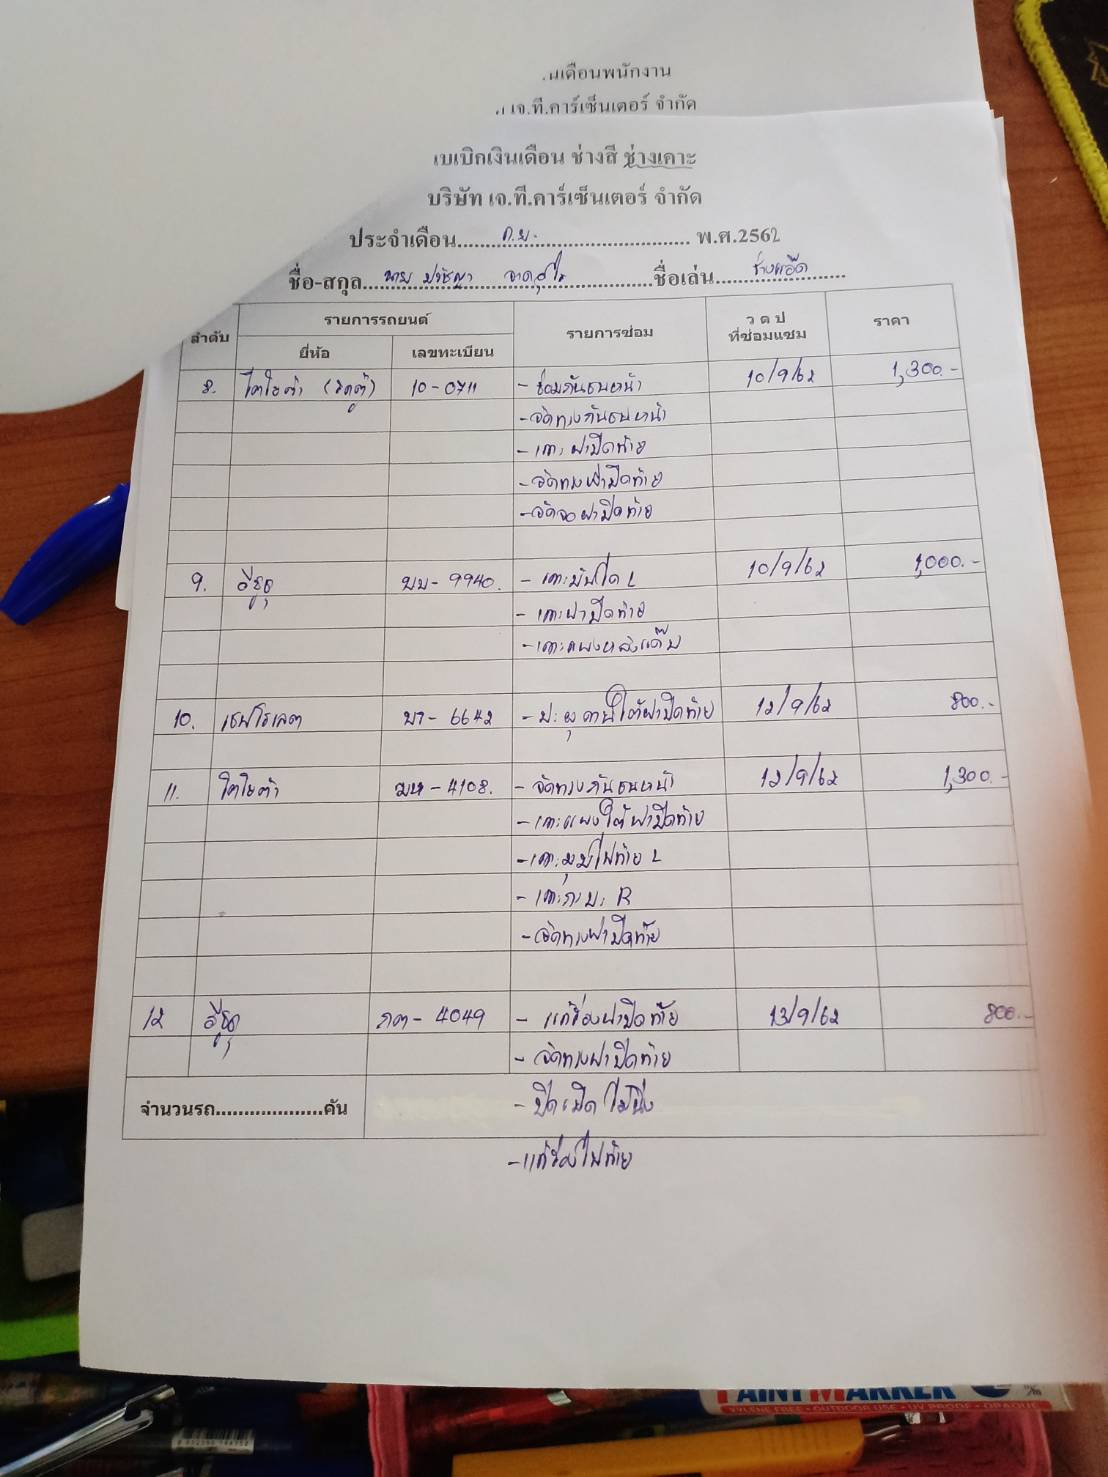 นเดือนพนักงาน
เจ.ที.คาร์เซ็นเตอร์ จำกัด
เบเบิกเงินเดือน ช่างสี ช่างเคาะ
บริษัท เจ.ที.คาร์เซ็นเตอร์ จำกัด
ประจำเดือน ก.ย. พ.ศ.2562
ชื่อ-สกุล นาย ปรัชญา ชื่อเล่น ช่างแอ๊ด
ลำดับ รายการรถยนต์ รายการซ่อม ว ด ป ที่ซ่อมแซม ราคา
ยี่ห้อ เลขทะเบียน
8. โตโยต้า (รถตู้) 10-0711 - ซ่อมกันชนหน้า 10/9/62 1,300.-
- จัดทรงกันชนหน้า
- เคาะฝาปิดท้าย
- จัดทรงฝาปิดท้าย
- จัดจอฝาปิดท้าย
9. อีซูซุ บบ-9940. - เคาะบันได L 10/9/62 1,000.-
- เคาะฝาปิดท้าย
- เคาะแผงหลังแค๊บ
10. เชฟโรเลต บว-6642 - ปะผุ คานใต้ฝาปิดท้าย 12/9/62 800.-
11. โตโยต้า ฆห-4108. - จัดทรงกันชนหน้า 12/9/62 1,300.-
- เคาะแผงใต้ฝาปิดท้าย
- เคาะมุมไฟท้าย L
- เคาะกะบะ R
- จัดทรงฝาปิดท้าย
12 อีซูซุ ภต-4049 - แก้ร่องฝาปิดท้าย 13/9/62 800.-
- จัดทรงฝาปิดท้าย
จำนวนรถ....................คัน - ปิดเปิดไม่นิ่ง
- แก้ร่องไฟท้าย
PAINT MARKER
XYLENE FREE - OUTDOOR USE - UV PROOF - OPAQUE